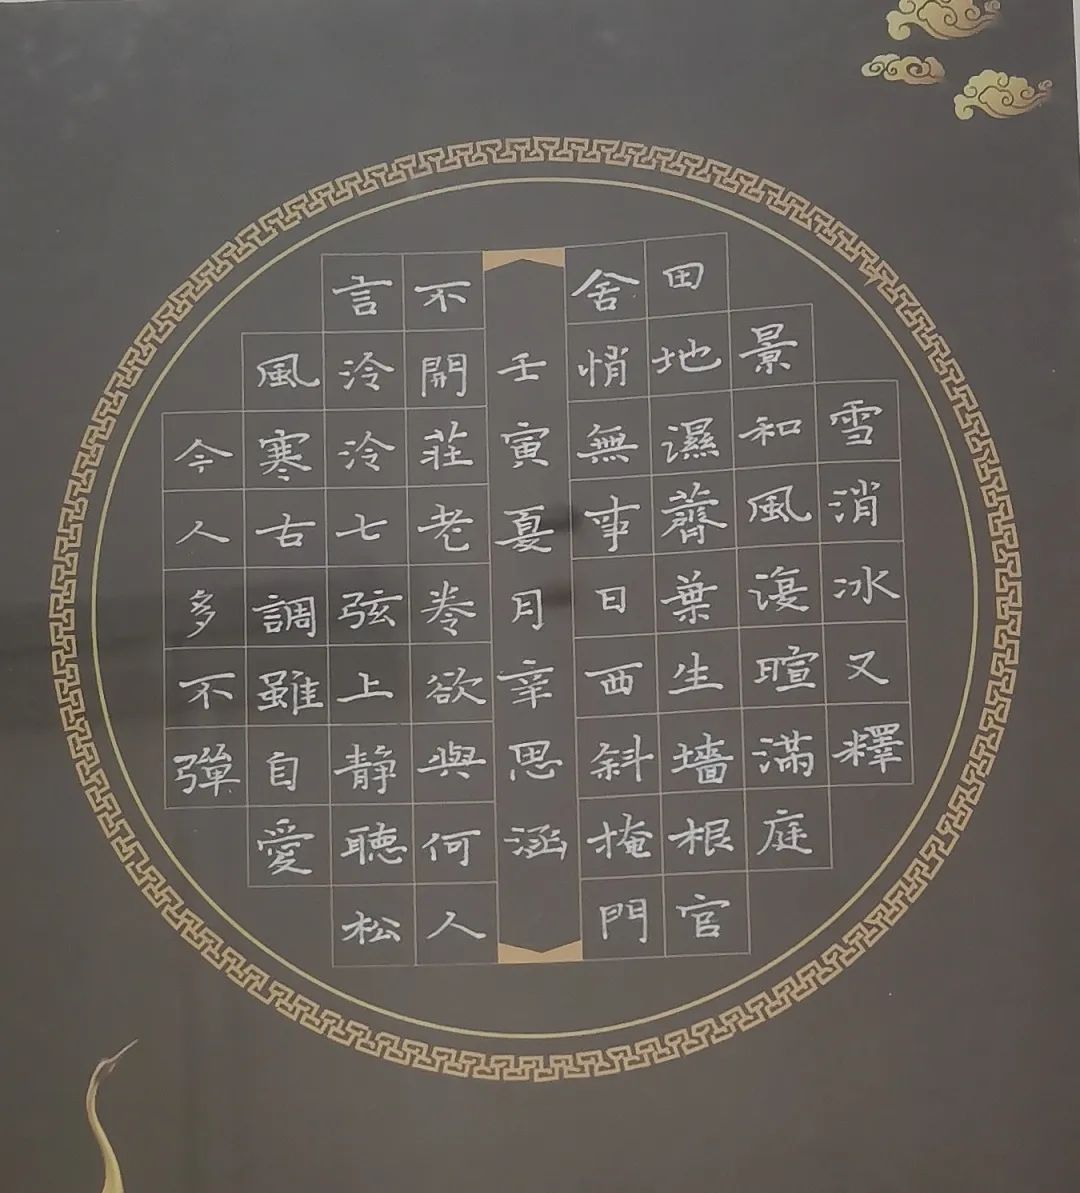 雪消冰又釋
景和風復暄滿庭
田地濕薺葉生墻根官
舍悄無事日西斜掩門
不開莊老卷欲與何人
言泠泠七弦上靜聽松
風寒古調雖自愛
今人多不彈
壬寅夏月辛思涵